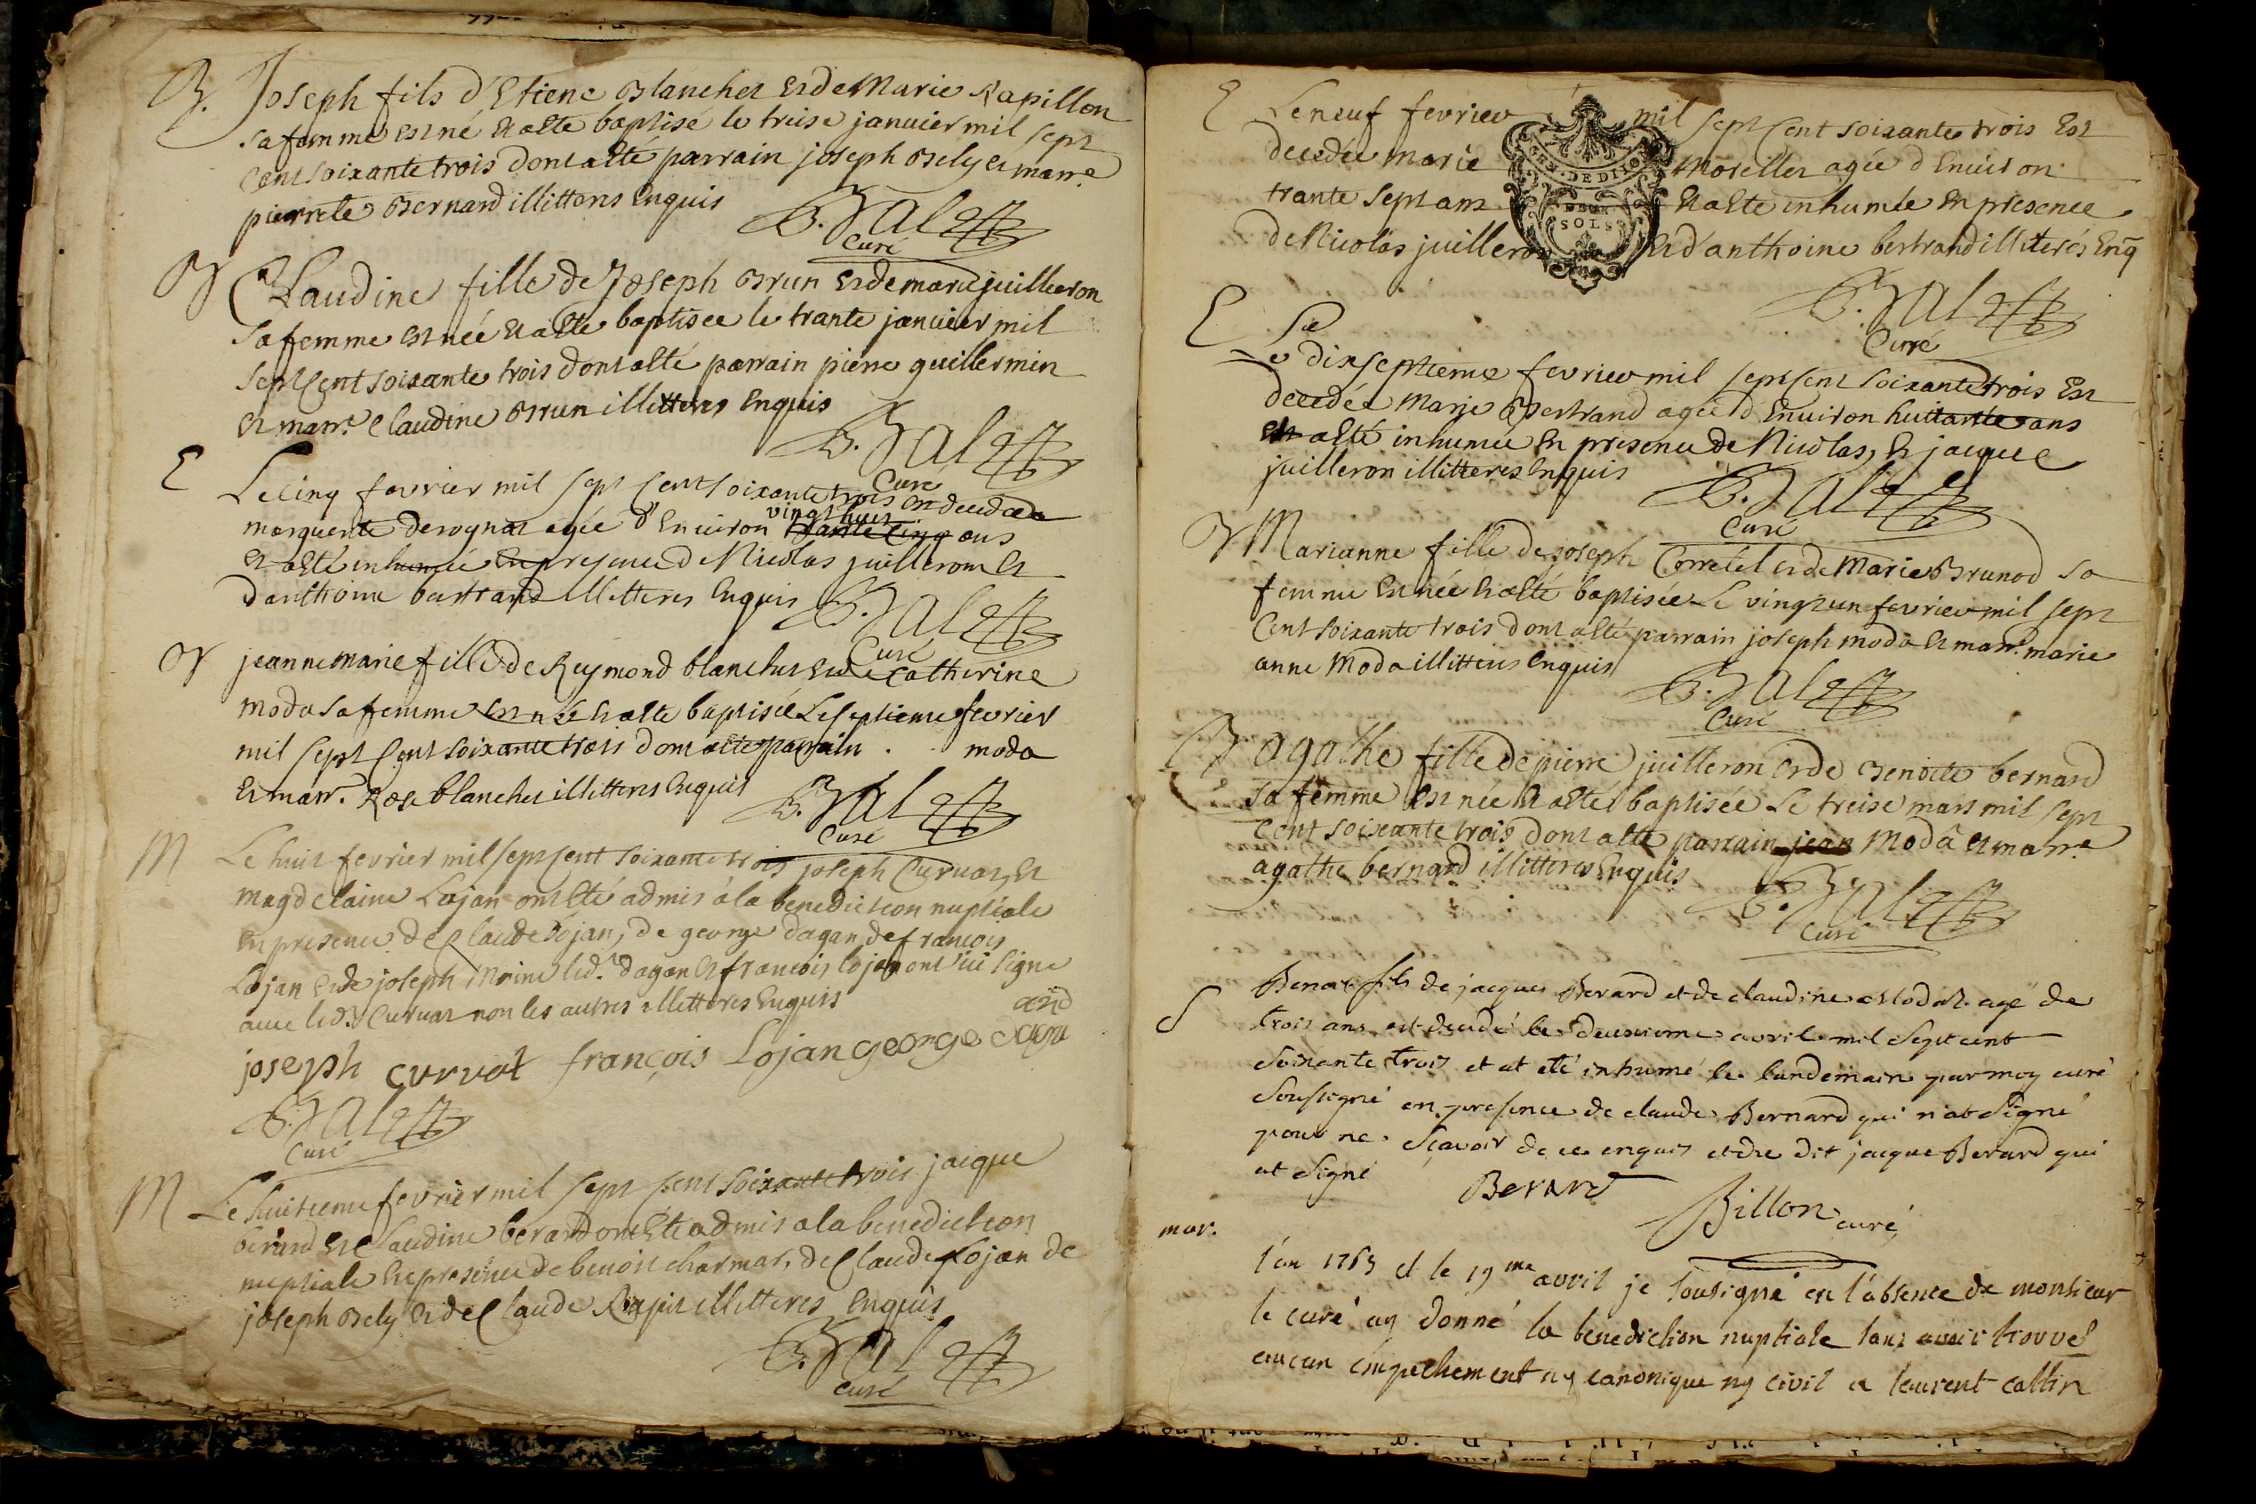 B. Joseph fils d'Etiene Blanchet et de Marie Rapillon
sa femme est né et a esté baptisé le treise janvier mil sept
cent soixante trois dont a esté parrain joseph Bely et marr.e
pierrete Bernard illitteres enquis
B. Bal
Curé
B Claudine fille de Joseph Brun et de marie juilleron
sa femme est née et a esté baptisée le trante janvier mil
sept cent soixante trois dont a esté parrain pierre guillermin
et marr.e claudine Brun illitteres enquis
B. Bal
Curé
E Le cinq fevrier mil sept cent soixante trois est decedée
vingt huit
marguerite derognat agée d'environ trante cinq ans
et a esté inhumée en presence de Nicolas juilleron et
d'anthoine bertrand illitteres enquis
B. Bal
Curé
B jeanne marie fille de Reymond blanchet et de Catherine
moda sa femme est née et a esté baptisée le septieme fevrier
mil sept cent soixante trois dont a esté parrain . . moda
et marr.e Rose blanchet illitteres enquis
B. Bal
Curé
M Le huit fevrier mil sept cent soixante trois joseph Curvat, et
magdelaine Lojan ont esté admis à la benediction nuptiale
en presence de Claude Lojan, de george dagan, de francois
Lojan et de joseph Moine led.t dagan et francois lojan ont ici signé
avec led.t Curvat non les autres illitteres enquis
joseph curvat françois Lojan george dagand
B. Bal
Curé
M Le huitieme fevrier mil sept cent soixante trois jacque
berard et Claudine berard ont esté admis a la benediction
nuptiale en presence de benoit charmat, de Claude Lojan de
joseph Bely et de Claude Rapit illitteres enquis
B. Bal
curé
E Le neuf fevrier mil sept cent soixante trois est
decedée marie Morellet agée d'environ
trante sept ans et a esté inhumée en presence
de Nicolas juilleron et d'anthoine bertrand illiterés enq
GEN. DE DIJON
DEUX
SOLS
B. Bal
Curé
E Le dixseptieme fevrier mil sept cent soixante trois est
decedée marie Bertrand agée d'environ huittante ans
et a esté inhumée en presence de Nicolas, et jacque
juilleron illitteres enquis
B. Bal
Curé
B Marianne fille de joseph Corretel et de Marie Brunod sa
femme est née et a esté baptisée le vingt un fevrier mil sept
cent soixante trois dont a esté parrain joseph moda et marr.e marie
anne Moda illitteres enquis
B. Bal
Curé
B agathe fille de pierre juilleron et de Benoite bernard
sa femme est née et a esté baptisée le treise mars mil sept
cent soixante trois dont a esté parrain jean Moda et marr.e
agathe bernard illitteres enquis
B. Bal
Curé
S Benoit fils de jacques Berard et de claudine Modaz agé de
trois ans est decedé le deuxieme avril mil sept cent
soixante trois et at eté inhumé le landemain par moy curé
soussigné en presence de claude Bernard qui n'at signé
pour ne sçavoir de ce enquis et du dit jacque Berard qui
at signé
Berard
Billon curé
mar.
l'an 1763 et le 19me avril je soussigné en l'absence de monsieur
le curé ay donné la benediction nuptiale sans avoir trouvé
aucun empechement ny canonique ny civil a laurent cattin